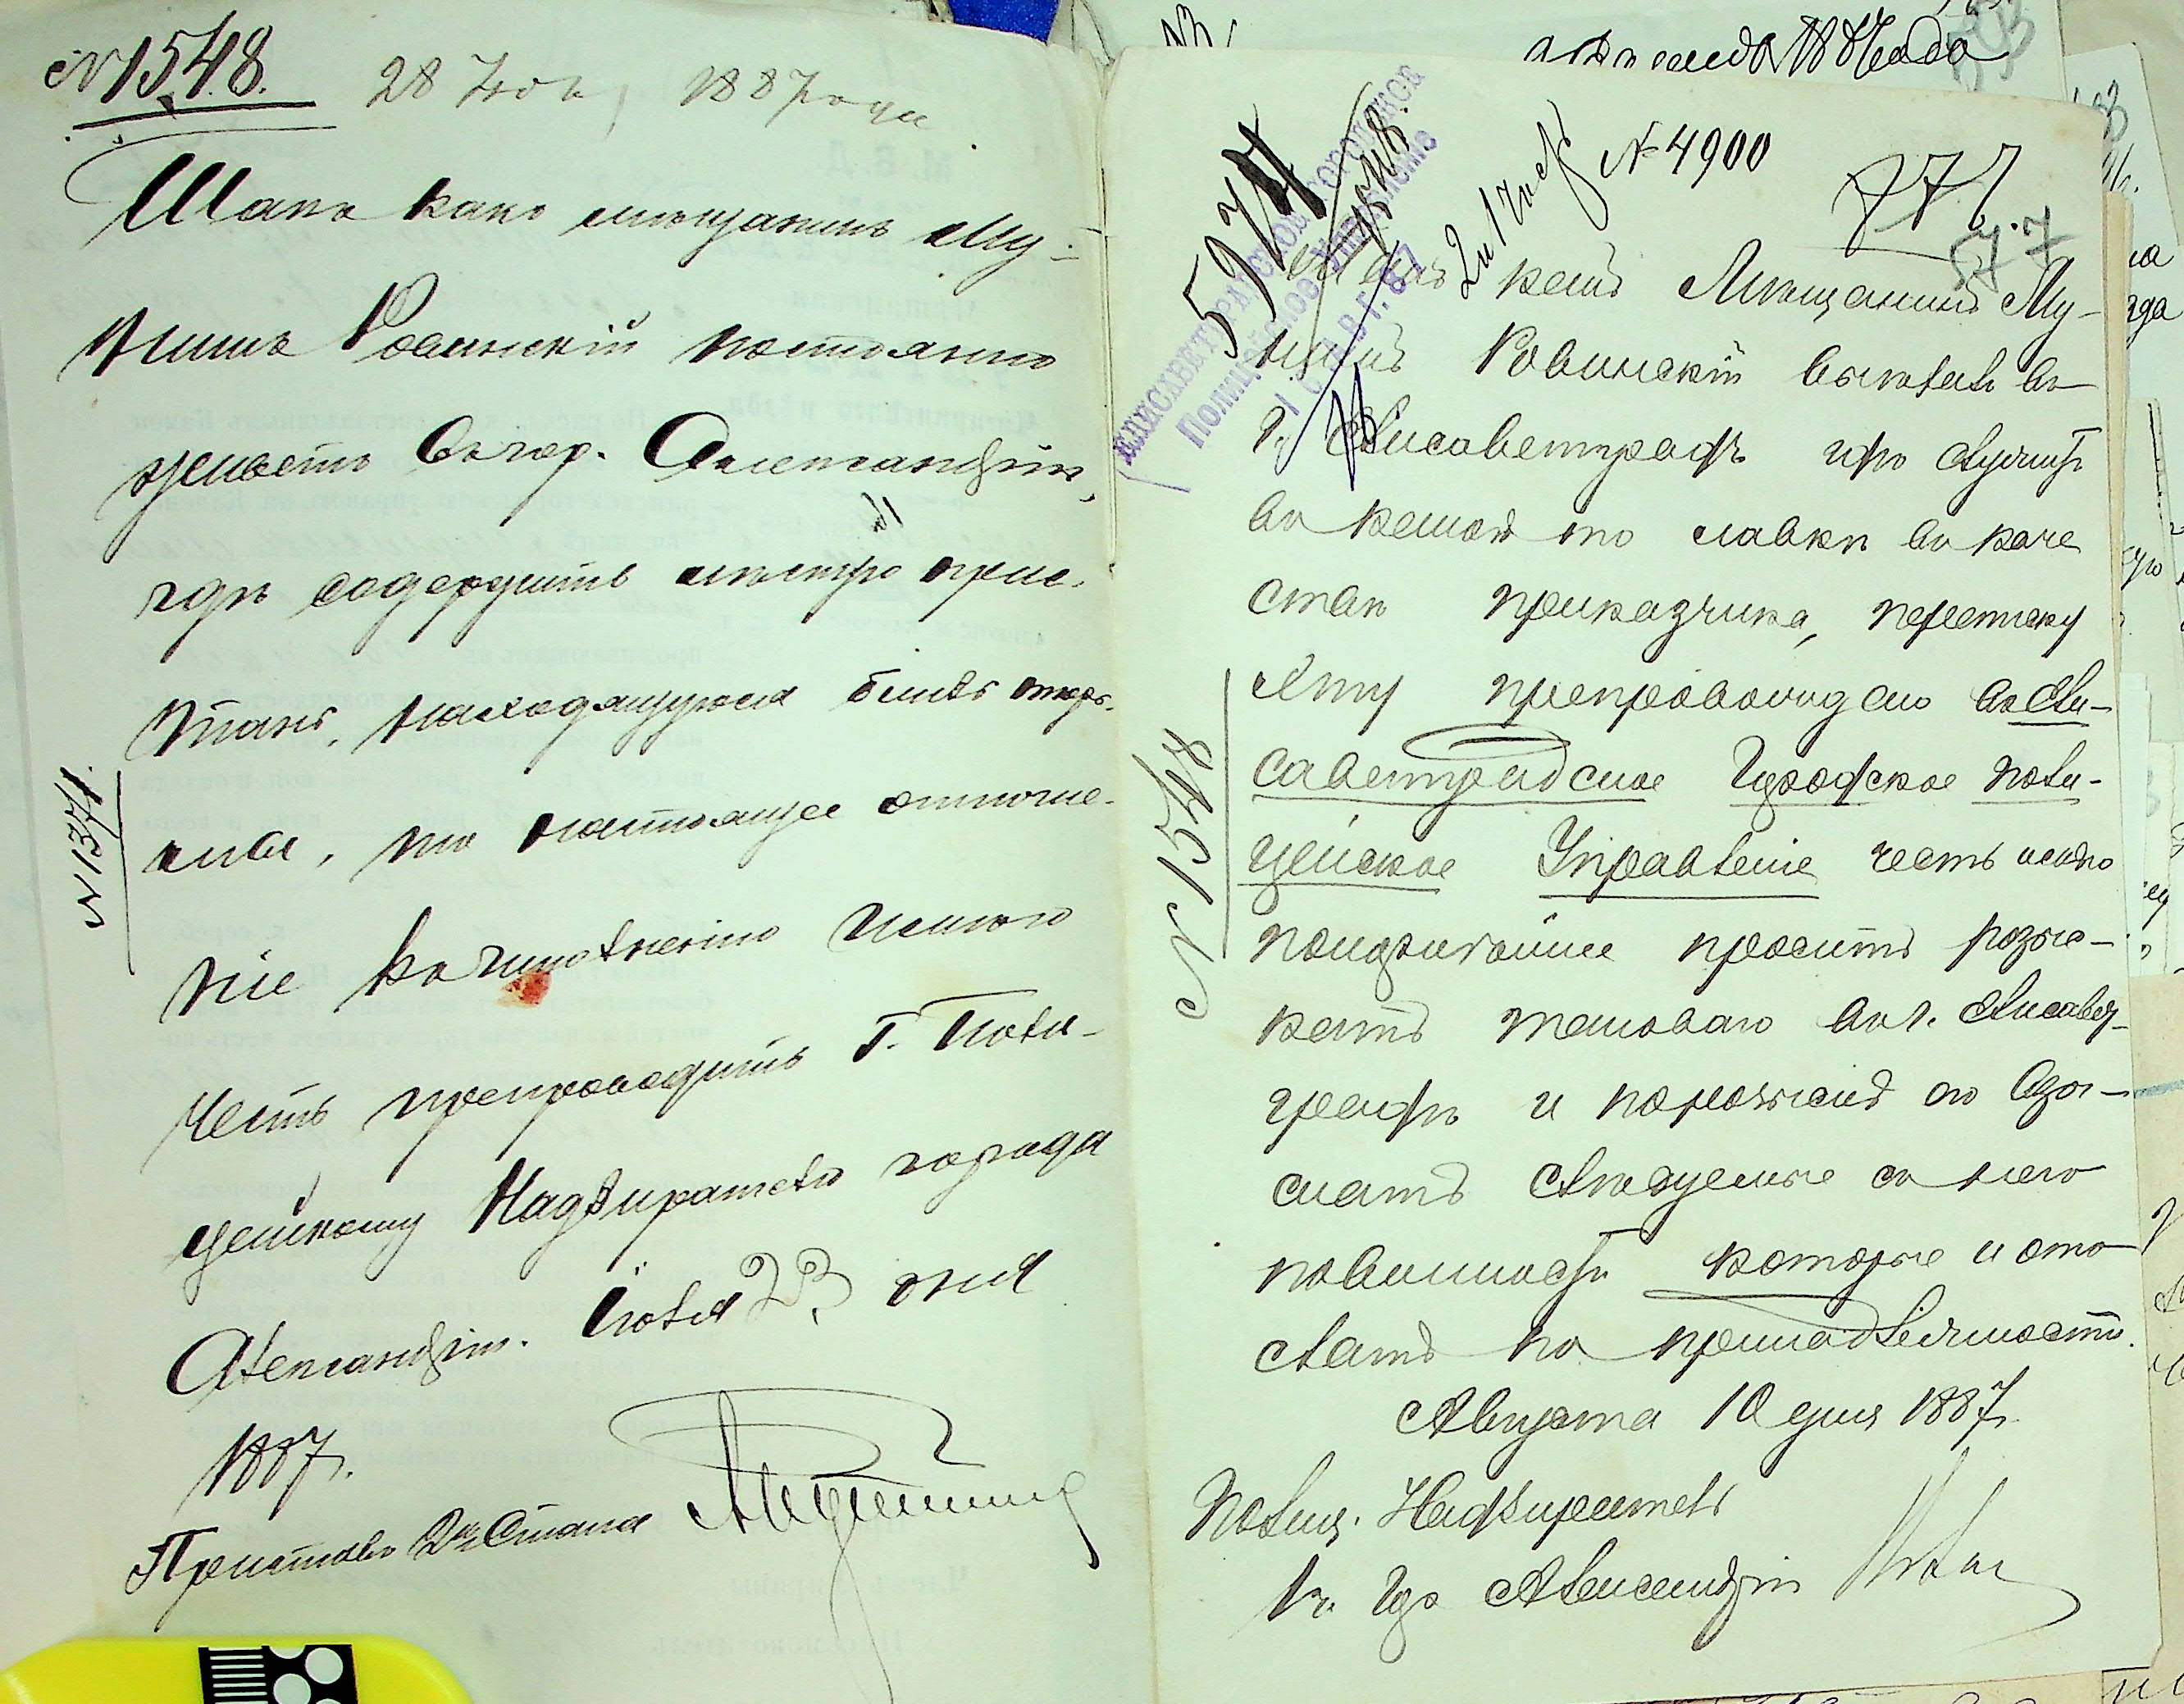 № 1548.
28 Іюл, 1887 года
Такъ какъ мѣщанинъ Му-
нишъ Ровинскій постоянно
живетъ въ гор. Александріи,
гдѣ содержитъ мѣстро прис-
тань, находящуюся близъ
то настоящее отноше-
ніе къ исполненію имѣю
честь препроводить Г. Поли-
цейскому Надзирателю города
Александріи. Іюля 23 дня
1887 г.
Приставъ 2 Стана
№ 1371.
5974
ЕЛИСАВЕТГРАДСКОЕ ГОРОДСКОЕ
Полицейское Управленіе
№ 4900
771.
577
Такъ какъ Мѣщанинъ Му-
нишъ Ровинскій выбылъ въ
г. Елисаветградъ гдѣ служитъ
въ какой то лавкѣ въ каче
ствѣ приказчика, переписку
эту препровождаю въ Ели-
саветградское Городское Поли-
цейское Управленіе честь имѣю
покорнѣйше просить розыс-
кать такового въ г. Елисавет-
градѣ и взы-
скать слѣдуемые съ него
повинности которые и ото-
слать по принадлежности.
Августа 10 дня 1887 г.
Полиц. Надзиратель
Гор Александріи
№ 1548